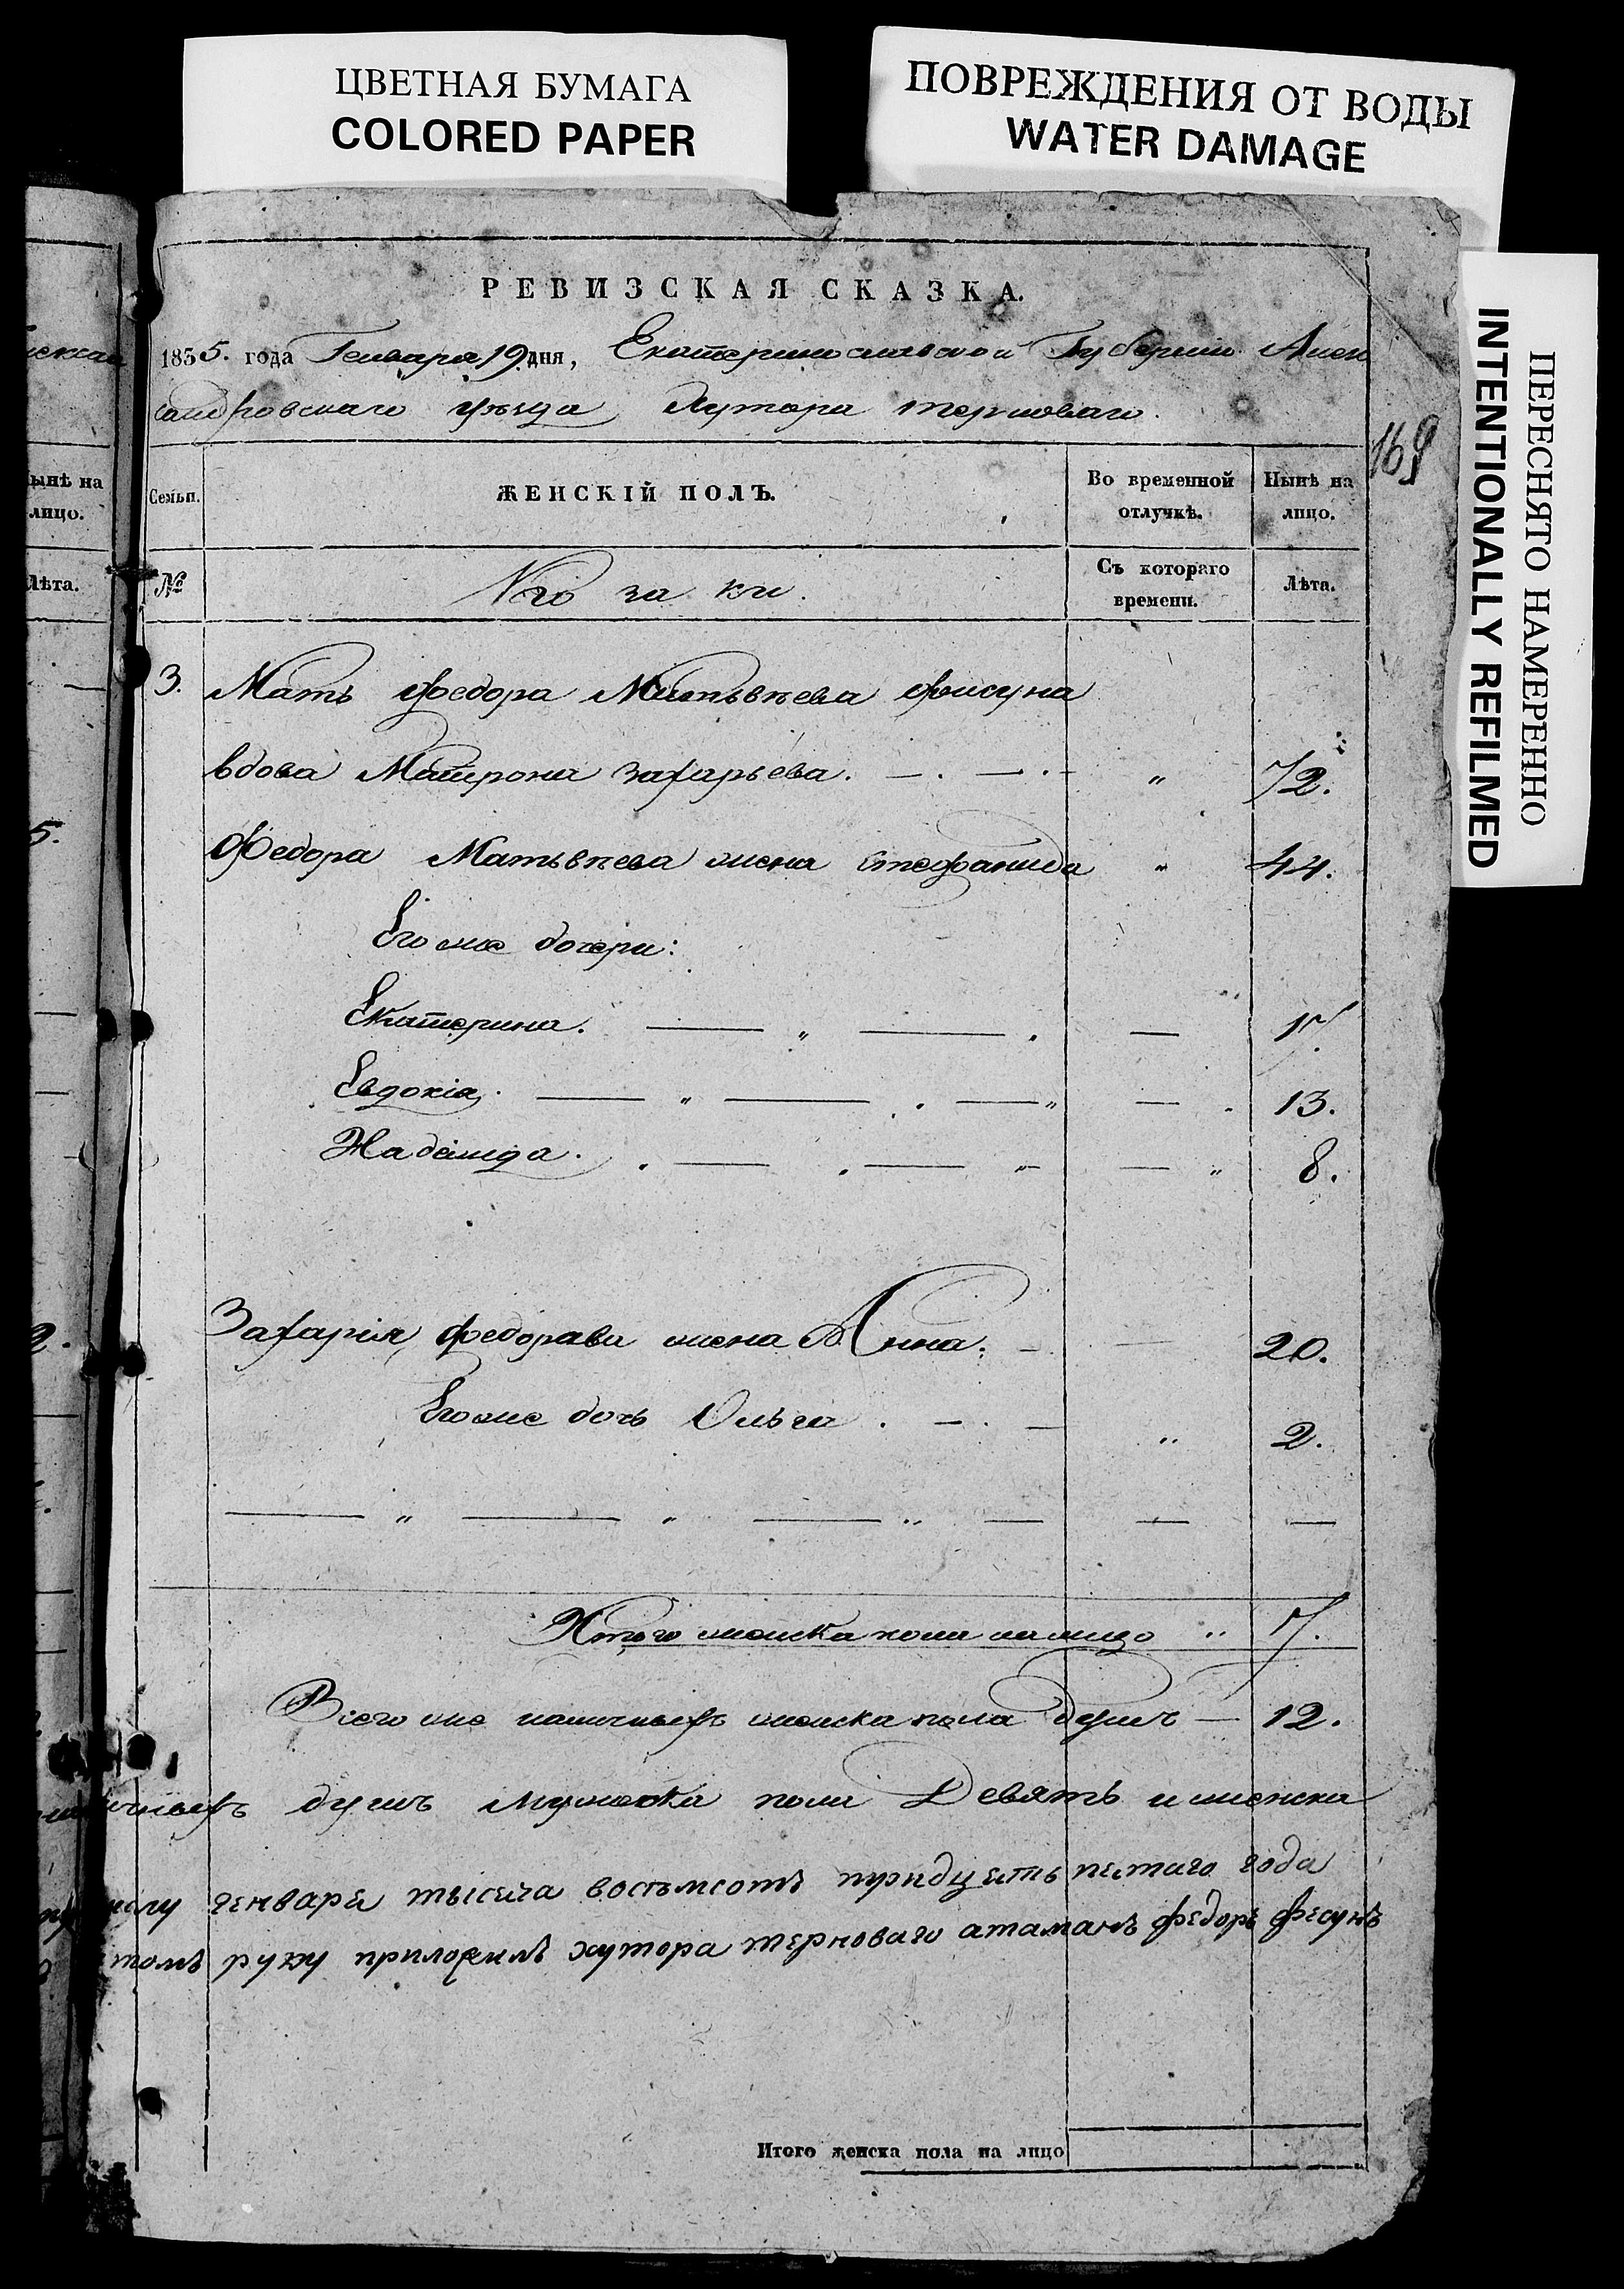 ЦВЕТНАЯ БУМАГА
COLORED PAPER
ПОВРЕЖДЕНИЯ ОТ ВОДЫ
WATER DAMAGE
ПЕРЕСНЯТО НАМЕРЕННО
INTENTIONALLY REFILMED
РЕВИЗСКАЯ СКАЗКА.
1835. года Генваря 19 дня, Екатеринославской Губернии Алек
сандровскаго уѣзда, Хутора терноваго.
169
ынѣ на
лицо.
Лѣта.
Семьи.
ЖЕНСКІЙ ПОЛЪ.
Во временной
отлучкѣ.
Нынѣ на
лицо.
№
Съ котораго
времени.
Лѣта.
3. Мать Федора Матьвѣева Фисуна
вдова Матрона Захарьева. — . — . „ 72.
Федора Матьвѣева жена Стефанида „ 44.
Его же дочери:
Екатерина. — „ — . — 17.
Евдокія. — „ — . — „ — 13.
Надежда. — . — „ — „ 8.
Захарія Федорава жена Анна. — — 20.
Его же дочь Ольга . — . — „ 2.
— „ — „ — „ — — —
Итого женска пола на лицо „ 7.
Всего же наличныхъ женска пола душъ — 12.
личныхъ душъ мужеска пола Девять и женска
генваря тысеча восъмсотъ тридцеть петаго года
томъ руку приложилъ хутора терноваго атаманъ федоръ фесунъ
Итого женска пола на лицо